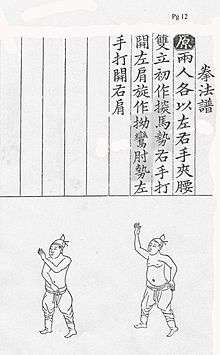 Pg 12
拳法譜
原兩人各以左右手夾腰
雙立初作探馬勢右手打
開左肩旋作拗鸞肘勢左
手打開右肩